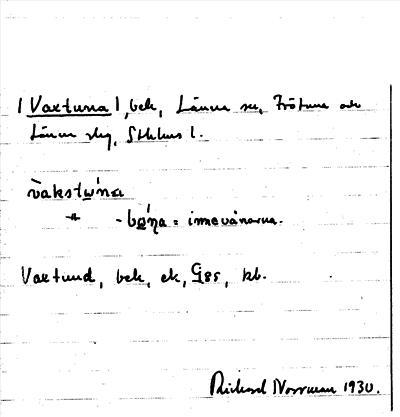 | Vaxtuna |, bek, Länna sn, Frötuna och
Länna slg, Sthlms l.
vakstu̲'na
-"- -bo̲'na = innevånarna.
Vaxtund, bek, ek, G85, kb.
Richard Norrman 1930.